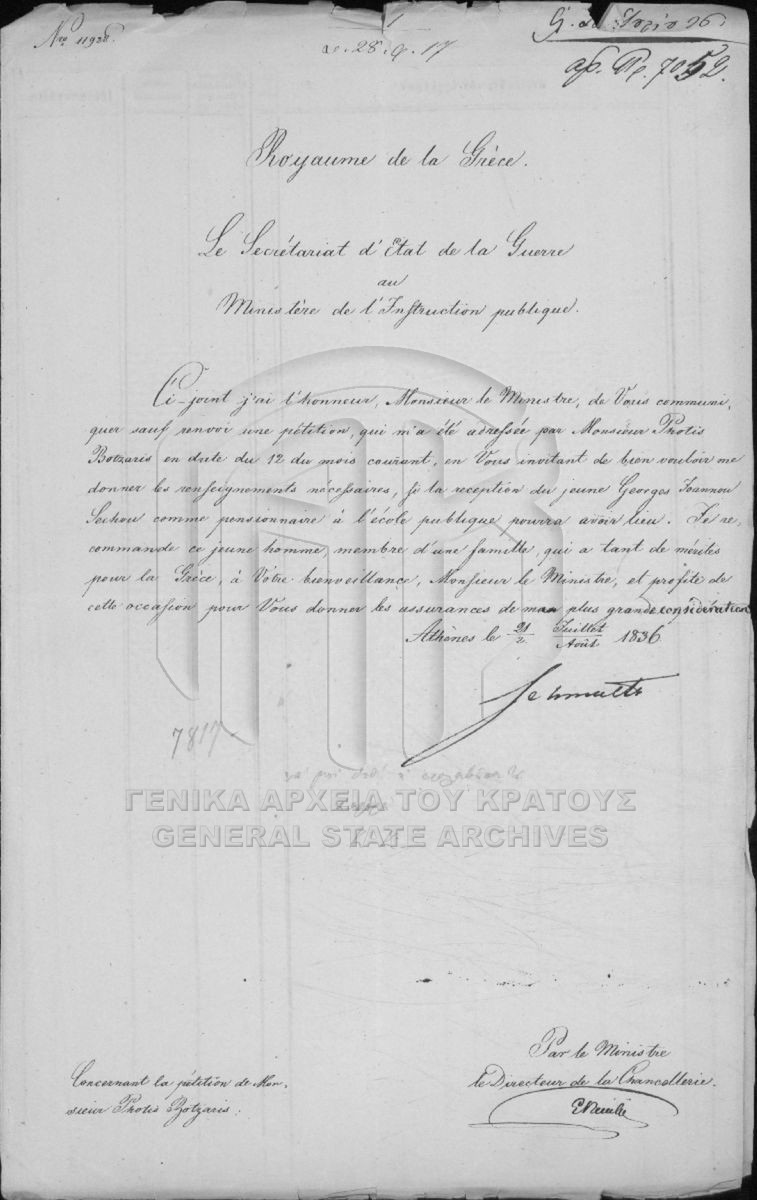 Nro 11928.
28. 9. 17
7052.
Royaume de la Grèce.
Le Secrétariat d'Etat de la Guerre
au
Ministère de l'Instruction publique.
Ci-joint j'ai l'honneur, Monsieur le Ministre, de Vous communi,
quer sauf renvoi une pétition, qui m'a été adressée par Monsieur Photis
Botzaris en date du 12 du mois courant, en Vous invitant de bien vouloir me
donner les renseignements nécessaires, si la reception du jeune Georges Ioannou
Sechou comme pensionnaire à l'école publique pourra avoir lieu. Je re,
commande ce jeune homme, membre d'une famille, qui a tant de mérites
pour la Grèce, à Vôtre bienveillance, Monsieur le Ministre, et profite de
cette occasion pour Vous donner les assurances de ma plus grande considération
Athènes le 21/2. Juillet/Août 1836
7817
ΓΕΝΙΚΑ ΑΡΧΕΙΑ ΤΟΥ ΚΡΑΤΟΥΣ
GENERAL STATE ARCHIVES
Par le Ministre
le Directeur de la Chancellerie.
Concernant la pétition de Mon,
sieur Photis Botzaris.